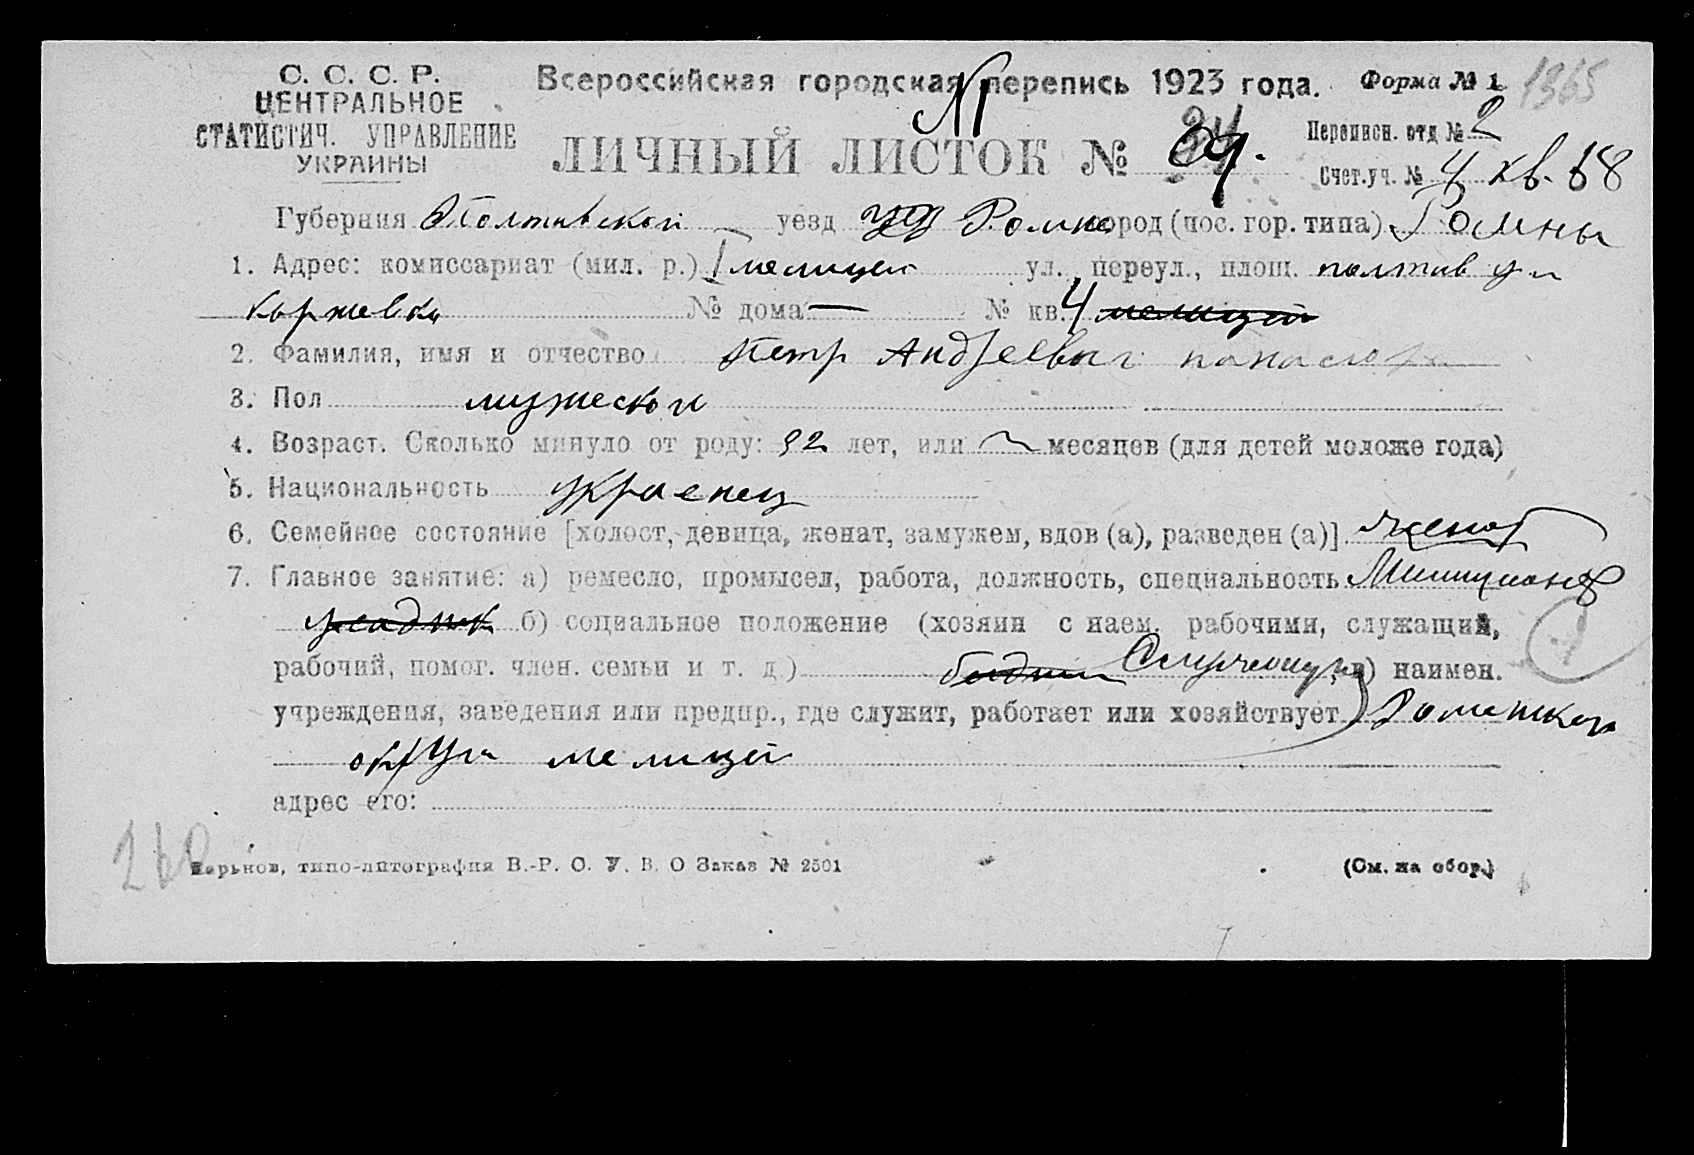 С. С. С. Р.
ЦЕНТРАЛЬНОЕ
СТАТИСТИЧ. УПРАВЛЕНИЕ
УКРАИНЫ
Всероссийская городская перепись 1923 года.
Форма № 1
1365
ЛИЧНЫЙ ЛИСТОК №
Переписн. отд № 2
Счет.уч. № 4 кв. 68
Губерния Полтавской уезд Ромны город (пос. гор. типа) Ромны
1. Адрес: комиссариат (мил. р.) I мелицеи ул., переул., площ. полтав ул
коржевка № дома — № кв. 4 мелицеи
2. Фамилия, имя и отчество Петр Андреевич
3. Пол мужеской
4. Возраст. Сколько минуло от роду: 92 лет, или месяцев (для детей моложе года)
5. Национальность украенец
6. Семейное состояние [холост, девица, женат, замужем, вдов (а), разведен (а)] женат
7. Главное занятие: а) ремесло, промысел, работа, должность, специальность Милиционер
б) социальное положение (хозяин с наем. рабочими, служащий,
рабочий, помог. член. семьи и т. д.) в) наимен.
учреждения, заведения или предпр., где служит, работает или хозяйствует Роменской
округи мелицеи
адрес его:
Харьков, типо-литография В.-Р. О. У. В. О Заказ № 2501
(См. на обор.)